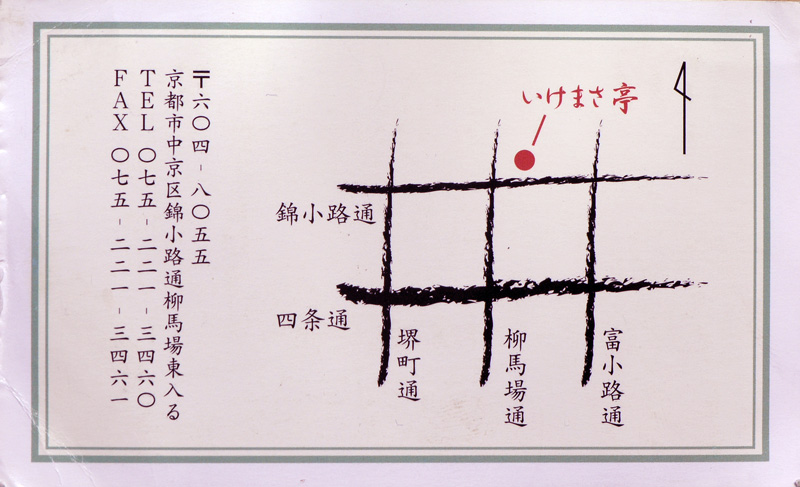 〒六〇四-八〇五五
京都市中京区錦小路通柳馬場東入る
TEL 〇七五-二二一-三四六〇
FAX 〇七五-二二一-三四六一
いけまさ亭
錦小路通
四条通
堺町通
柳馬場通
富小路通